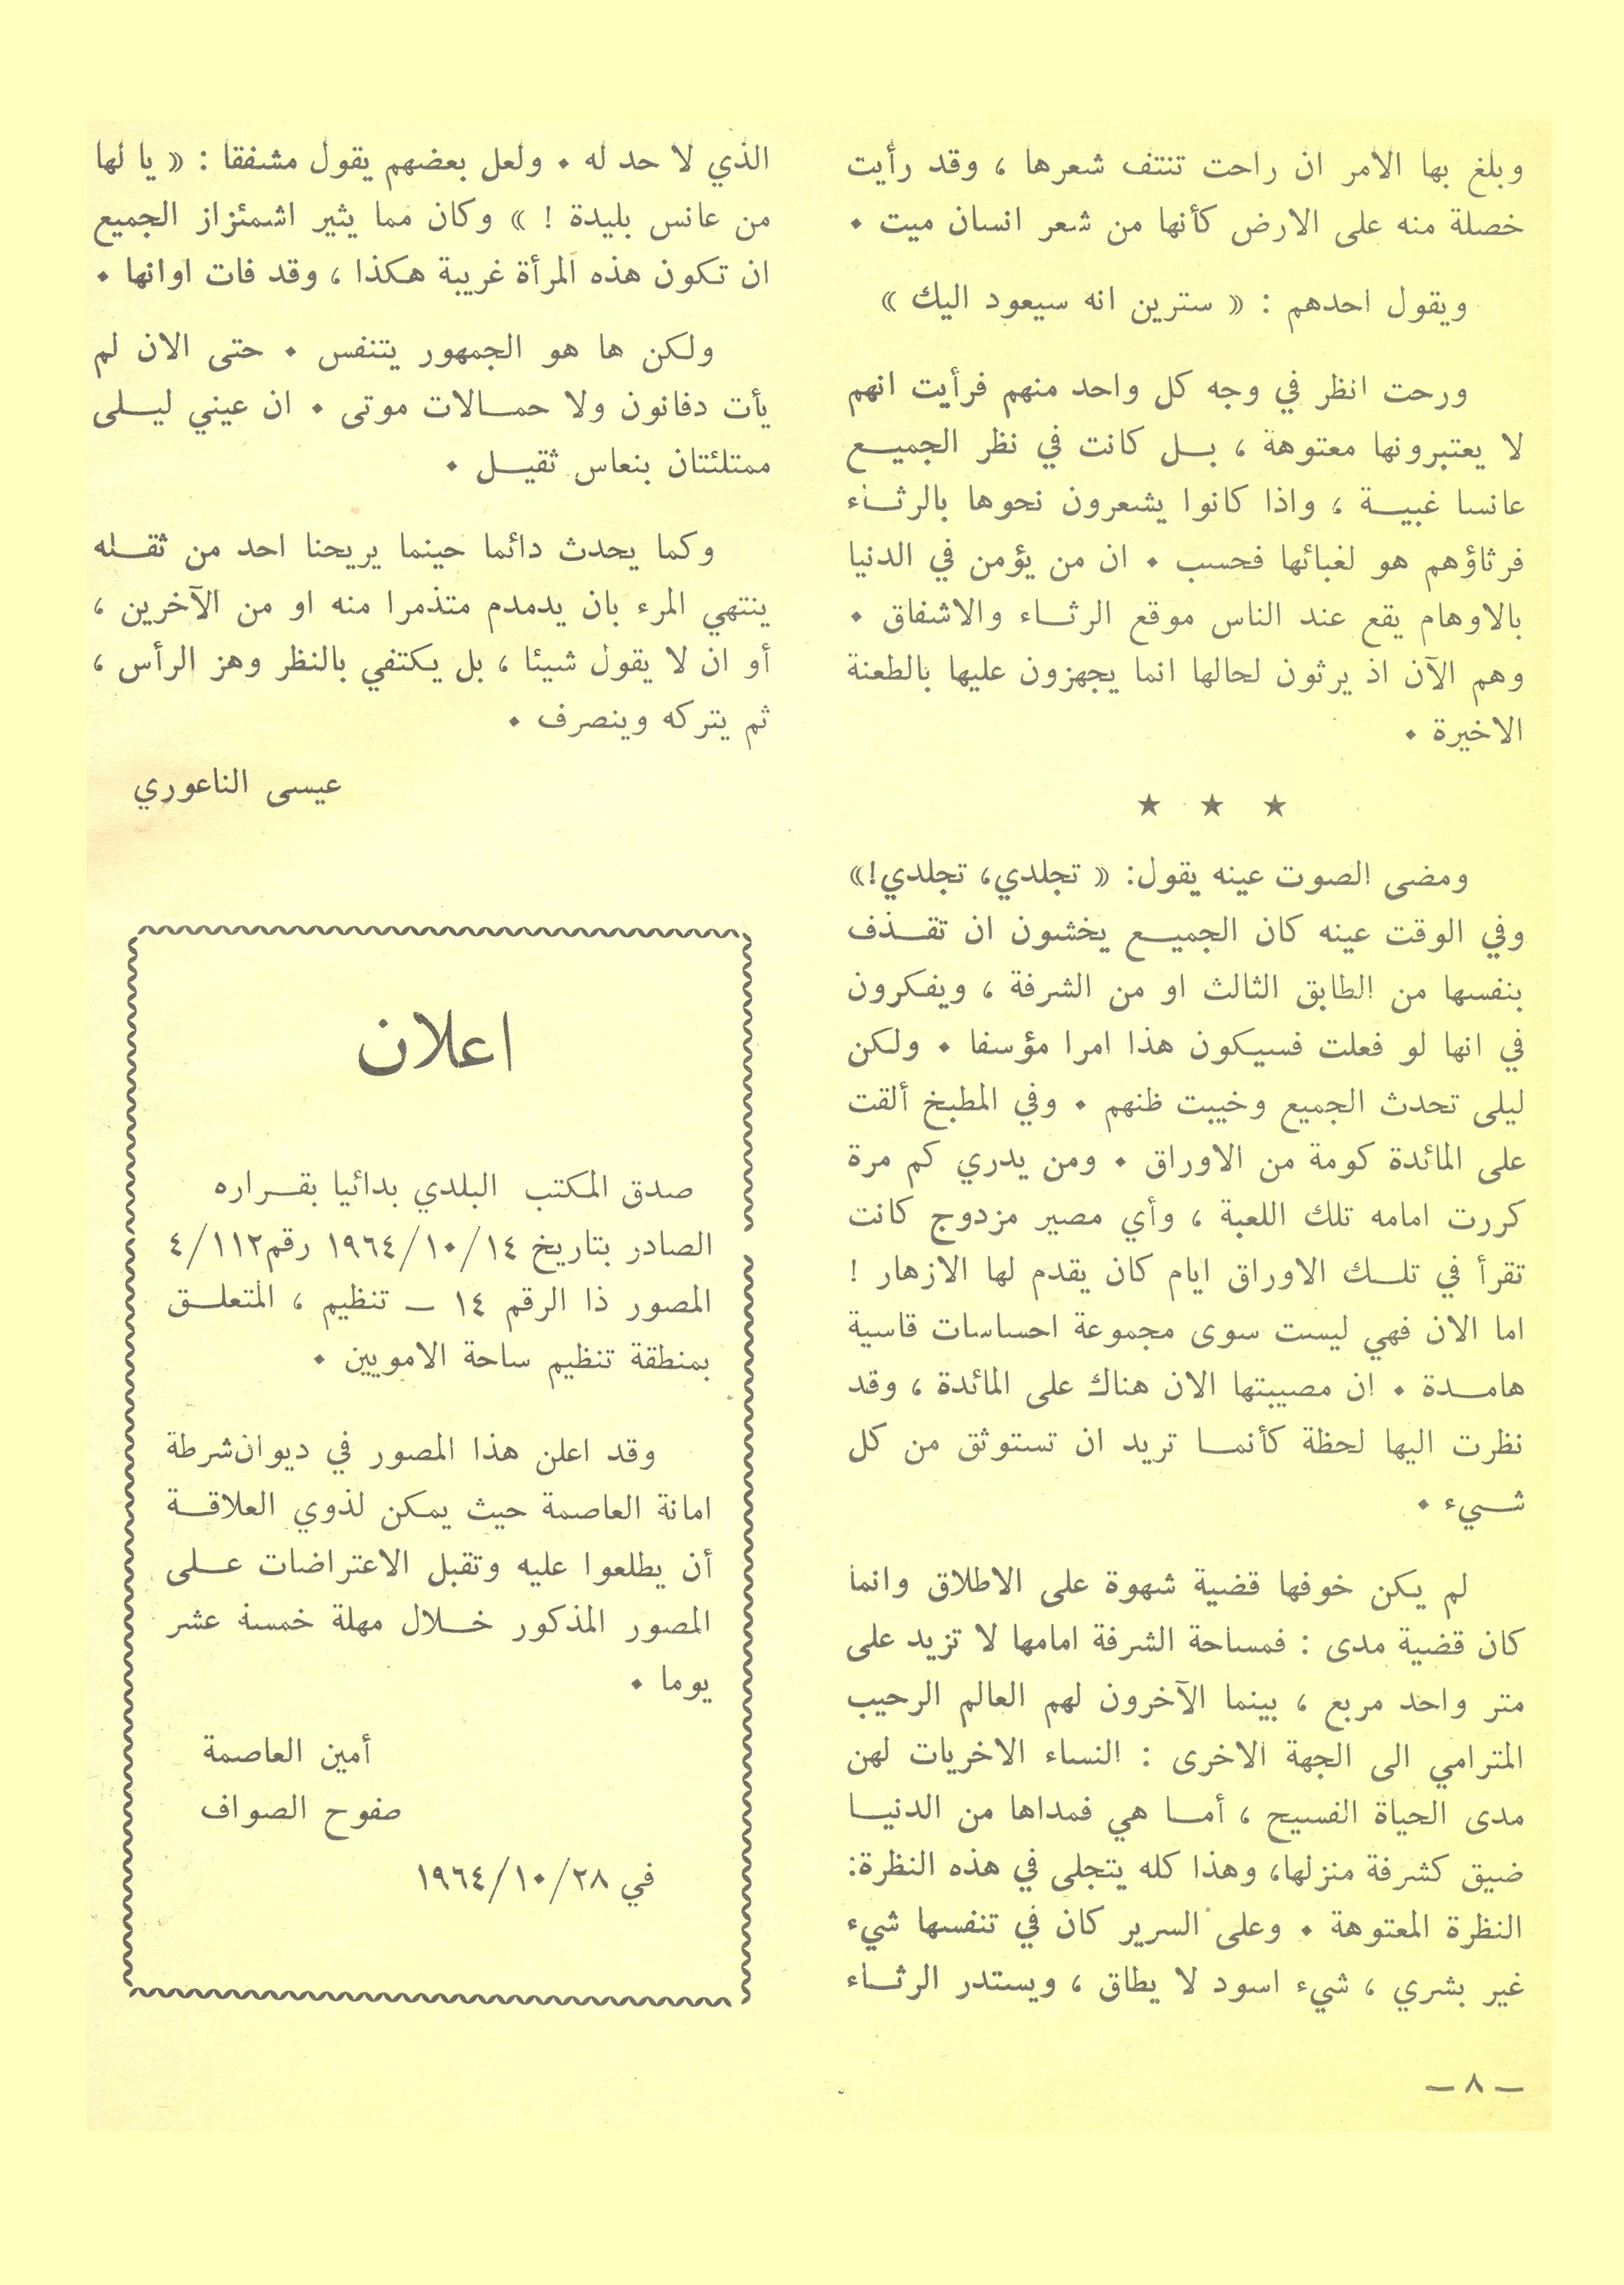 وبلغ بها الامر ان راحت تنتف شعرها ، وقد رأيت
خصلة منه على الارض كأنها من شعر انسان ميت ٠
ويقول احدهم : « سترين انه سيعود اليك »
ورحت انظر في وجه كل واحد منهم فرأيت انهم
لا يعتبرونها معتوهة ، بل كانت في نظر الجميع
عانسا غبية ، واذا كانوا يشعرون نحوها بالرثاء
فرثاؤهم هو لغبائها فحسب ٠ ان من يؤمن في الدنيا
بالاوهام يقع عند الناس موقع الرثاء والاشفاق ٠
وهم الآن اذ يرثون لحالها انما يجهزون عليها بالطعنة
الاخيرة ٠
★ ★ ★
ومضى الصوت عينه يقول: « تجلدي، تجلدي!»
وفي الوقت عينه كان الجميع يخشون ان تقذف
بنفسها من الطابق الثالث او من الشرفة ، ويفكرون
في انها لو فعلت فسيكون هذا امرا مؤسفا ٠ ولكن
ليلى تحدث الجميع وخيبت ظنهم ٠ وفي المطبخ ألقت
على المائدة كومة من الاوراق ٠ ومن يدري كم مرة
كررت امامه تلك اللعبة ، وأي مصير مزدوج كانت
تقرأ في تلك الاوراق ايام كان يقدم لها الازهار !
اما الان فهي ليست سوى مجموعة احساسات قاسية
هامدة ٠ ان مصيبتها الان هناك على المائدة ، وقد
نظرت اليها لحظة كأنما تريد ان تستوثق من كل
شيء ٠
لم يكن خوفها قضية شهوة على الاطلاق وانما
كان قضية مدى : فمساحة الشرفة امامها لا تزيد على
متر واحد مربع ، بينما الآخرون لهم العالم الرحيب
المترامي الى الجهة الاخرى : النساء الاخريات لهن
مدى الحياة الفسيح ، أما هي فمداها من الدنيا
ضيق كشرفة منزلها، وهذا كله يتجلى في هذه النظرة:
النظرة المعتوهة ٠ وعلى السرير كان في تنفسها شيء
غير بشري ، شيء اسود لا يطاق ، ويستدر الرثاء
— ٨ —
الذي لا حد له ٠ ولعل بعضهم يقول مشفقا : « يا لها
من عانس بليدة ! » وكان مما يثير اشمئزاز الجميع
ان تكون هذه المرأة غريبة هكذا ، وقد فات اوانها ٠
ولكن ها هو الجمهور يتنفس ٠ حتى الان لم
يأت دفانون ولا حمالات موتى ٠ ان عيني ليلى
ممتلئتان بنعاس ثقيل ٠
وكما يحدث دائما حينما يريحنا احد من ثقله
ينتهي المرء بان يدمدم متذمرا منه او من الآخرين ،
أو ان لا يقول شيئا ، بل يكتفي بالنظر وهز الرأس ،
ثم يتركه وينصرف ٠
عيسى الناعوري
اعلان
صدق المكتب البلدي بدائيا بقراره
الصادر بتاريخ ١٩٦٤/١٠/١٤ رقم ٤/١١٢
المصور ذا الرقم ١٤ — تنظيم ، المتعلق
بمنطقة تنظيم ساحة الامويين ٠
وقد اعلن هذا المصور في ديوان شرطة
امانة العاصمة حيث يمكن لذوي العلاقة
أن يطلعوا عليه وتقبل الاعتراضات على
المصور المذكور خلال مهلة خمسة عشر
يوما ٠
أمين العاصمة
صفوح الصواف
في ١٩٦٤/١٠/٢٨